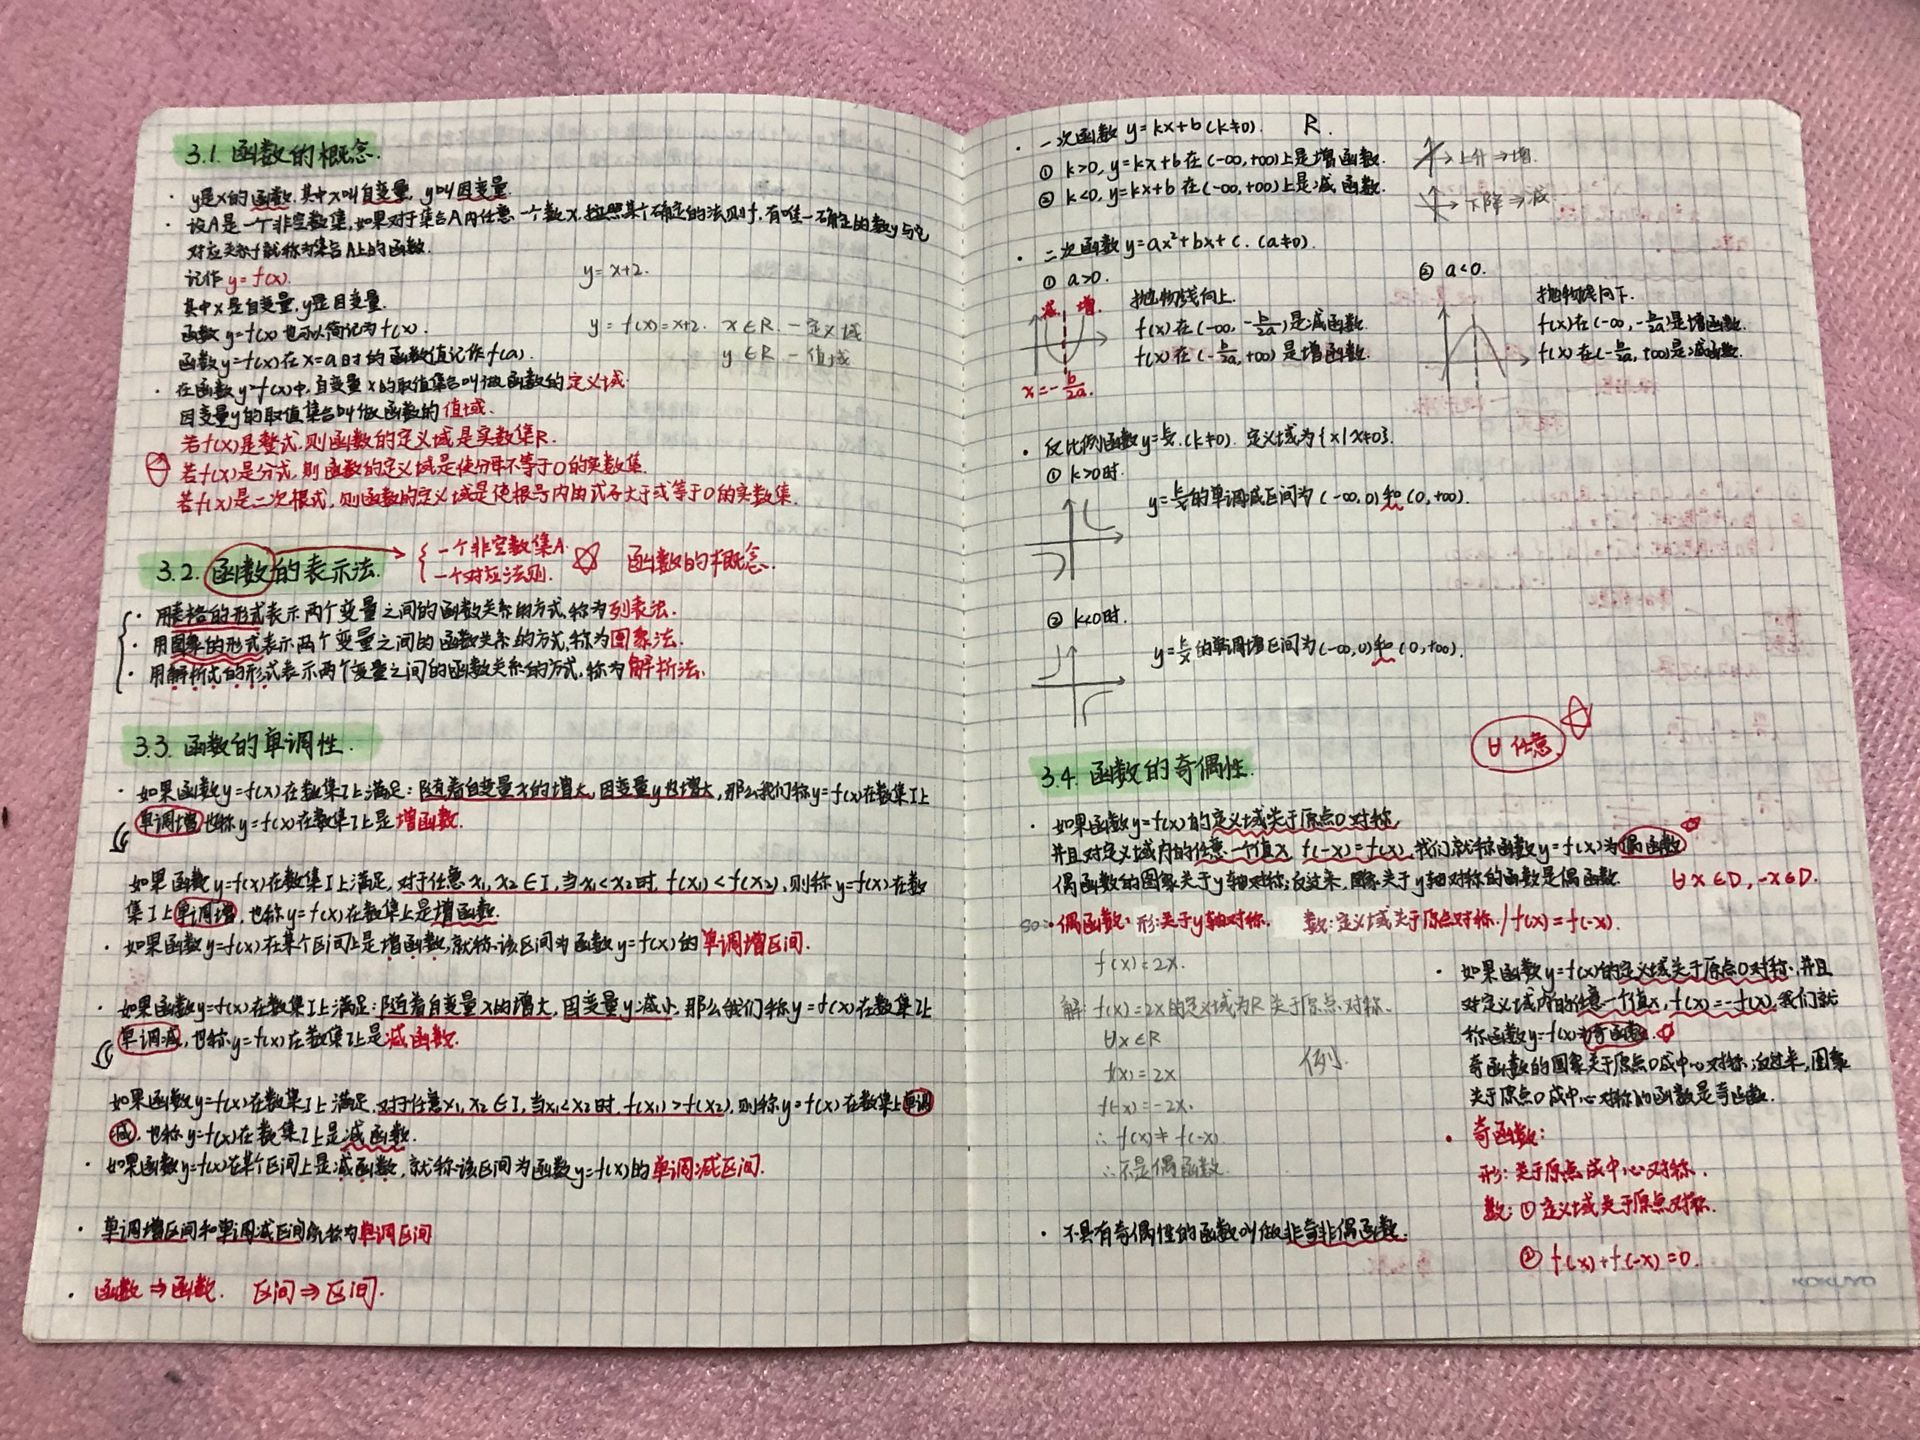 3.1. 函数的概念.
· y是x的函数,其中x叫自变量,y叫因变量.
· 设A是一个非空数集,如果对于集合A内任意一个数x,按照某个确定的法则f,有唯一确定的数y与它
对应,关系f就称为集合A上的函数.
记作 y=f(x). y=x+2.
其中x是自变量,y是因变量.
函数y=f(x)也可以简记为f(x). y=f(x)=x+2. x∈R. — 定义域
函数y=f(x)在x=a时的函数值记作f(a). y∈R — 值域
· 在函数y=f(x)中,自变量x的取值集合叫做函数的定义域.
因变量y的取值集合叫做函数的值域.
若f(x)是整式,则函数的定义域是实数集R.
若f(x)是分式,则函数的定义域是使分母不等于0的实数集.
若f(x)是二次根式,则函数的定义域是使根号内的式子大于或等于0的实数集.
3.2. 函数的表示法.
一个非空数集A.
一个对应法则.
函数的概念.
· 用表格的形式表示两个变量之间的函数关系的方式,称为列表法.
· 用图象的形式表示两个变量之间的函数关系的方式,称为图象法.
· 用解析式的形式表示两个变量之间的函数关系的方式,称为解析法.
3.3. 函数的单调性.
· 如果函数y=f(x)在数集I上满足:随着自变量x的增大,因变量y也增大,那么我们称y=f(x)在数集I上
单调增,也称y=f(x)在数集I上是增函数.
如果函数y=f(x)在数集I上满足,对于任意x₁,x₂∈I,当x₁<x₂时,f(x₁)<f(x₂),则称y=f(x)在数
集I上单调增,也称y=f(x)在数集上是增函数.
· 如果函数y=f(x)在某个区间上是增函数,就称该区间为函数y=f(x)的单调增区间.
· 如果函数y=f(x)在数集I上满足:随着自变量x的增大,因变量y减小,那么我们称y=f(x)在数集I上
单调减,也称y=f(x)在数集I上是减函数.
如果函数y=f(x)在数集I上满足,对于任意x₁,x₂∈I,当x₁<x₂时,f(x₁)>f(x₂),则称y=f(x)在数集上单调
减,也称y=f(x)在数集I上是减函数.
· 如果函数y=f(x)在某个区间上是减函数,就称该区间为函数y=f(x)的单调减区间.
· 单调增区间和单调减区间统称为单调区间
· 函数⇒函数. 区间⇒区间.
· 一次函数y=kx+b(k≠0). R.
① k>0,y=kx+b在(-∞,+∞)上是增函数. →上升⇒增.
② k<0,y=kx+b在(-∞,+∞)上是减函数. →下降⇒减
· 二次函数y=ax²+bx+c.(a≠0).
① a>0.
减 增.
抛物线向上.
f(x)在(-∞,-b/2a)是减函数.
f(x)在(-b/2a,+∞)是增函数.
x=-b/2a.
② a<0.
抛物线向下.
f(x)在(-∞,-b/2a)是增函数.
f(x)在(-b/2a,+∞)是减函数.
· 反比例函数y=k/x.(k≠0). 定义域为{x|x≠0}.
① k>0时.
y=k/x的单调减区间为(-∞,0)和(0,+∞).
② k<0时.
y=k/x的单调增区间为(-∞,0)和(0,+∞).
∀ 任意.
3.4. 函数的奇偶性.
· 如果函数y=f(x)的定义域关于原点O对称,
并且对定义域内的任意一个值x,f(-x)=f(x),我们就称函数y=f(x)为偶函数
偶函数的图象关于y轴对称;反过来,图象关于y轴对称的函数是偶函数. ∀x∈D,-x∈D.
so:· 偶函数:形:关于y轴对称. 数:定义域关于原点对称./f(x)=f(-x).
f(x)=2x.
解:f(x)=2x的定义域为R 关于原点对称.
∀x∈R
f(x)=2x
f(-x)=-2x.
∴ f(x)≠f(-x)
∴不是偶函数.
例.
· 不具有奇偶性的函数叫做非奇非偶函数.
· 如果函数y=f(x)的定义域关于原点O对称,并且
对定义域内的任意一个值x,f(x)=-f(x),我们就
称函数y=f(x)为奇函数.
奇函数的图象关于原点O成中心对称;反过来,图象
关于原点O成中心对称的函数是奇函数.
· 奇函数:
形:关于原点成中心对称.
数:① 定义域关于原点对称.
② f(x)+f(-x)=0.
KOKUYO